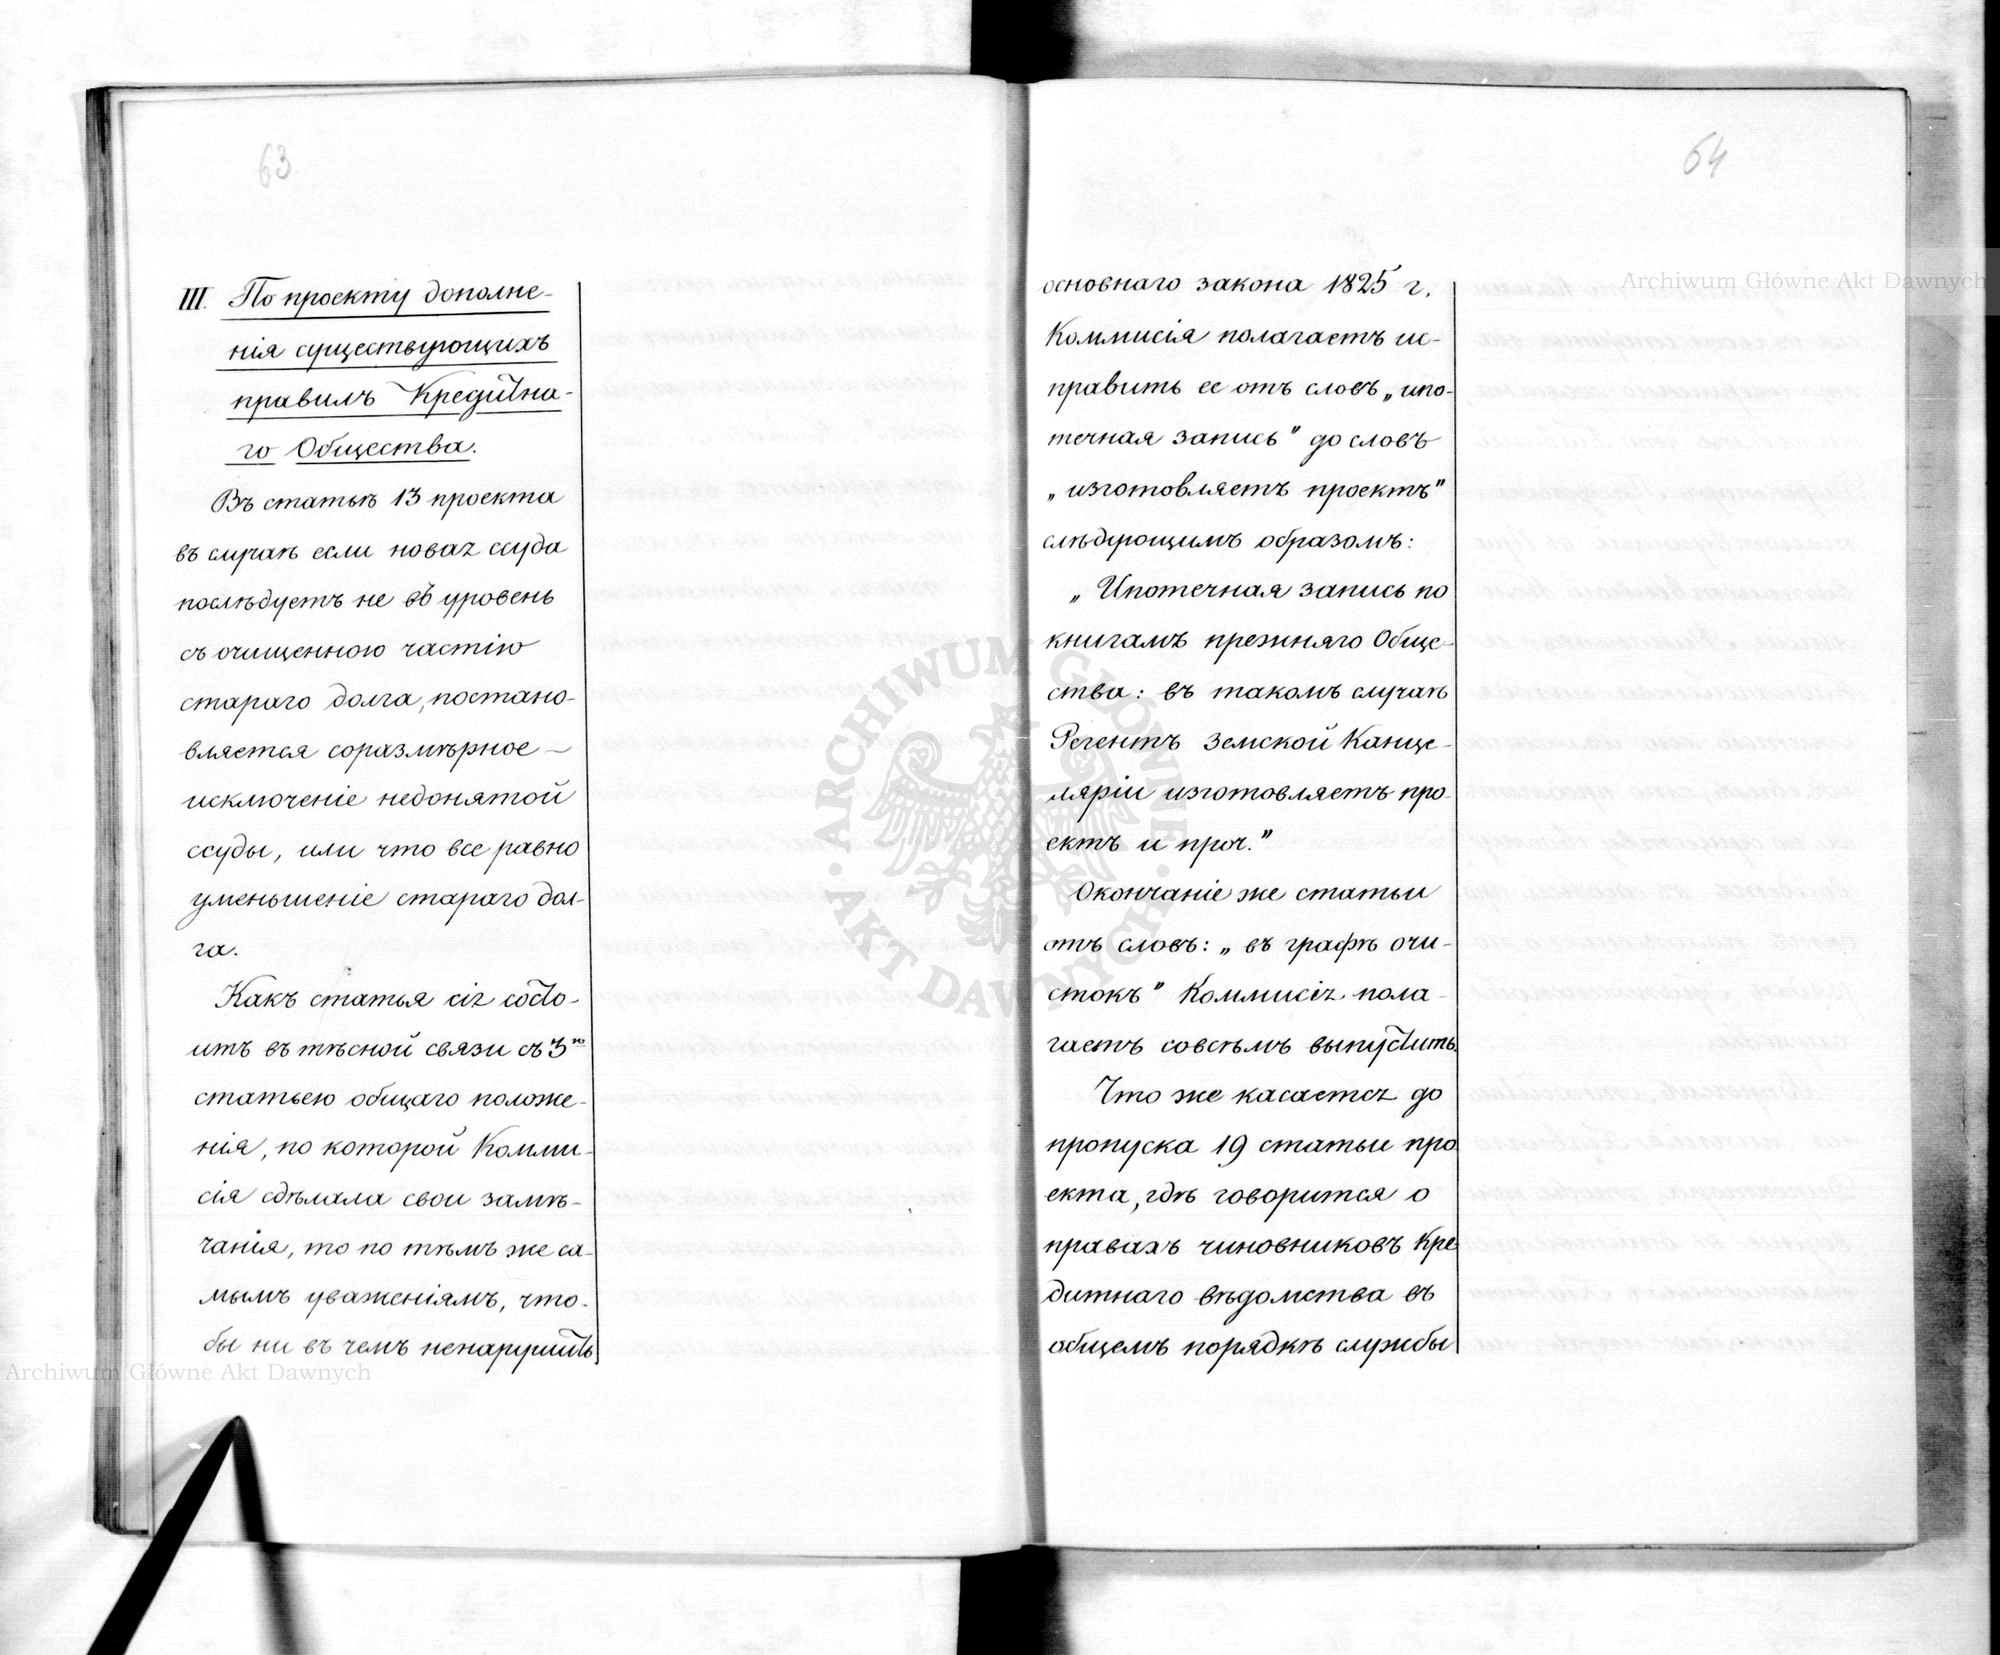 63
III. По проекту дополне-
нія существующихъ
правилъ Кредитна-
го Общества.
Въ статьѣ 13 проекта
въ случаѣ если новая ссуда
послѣдуетъ не въ уровень
съ очищенною частію
стараго долга, постано-
вляется соразмѣрное —
исключеніе недонятой
ссуды, или что все равно
уменьшеніе стараго дол-
га.
Какъ статья сія состо-
итъ въ тѣсной связи съ 3ю
статьею общаго положе-
нія, по которой Комми-
сія сдѣлала свои замѣ-
чанія, то по тѣмъ же са-
мымъ уваженіямъ, что-
бы ни въ чемъ ненарушить
64
основнаго закона 1825 г.
Коммисія полагаетъ ис-
править ее отъ словъ „ипо-
течная запись” до словъ
„изготовляетъ проектъ”
слѣдующимъ образомъ:
„Ипотечная запись по
книгамъ прежняго Обще-
ства: въ такомъ случаѣ
Регентъ Земской Канце-
ляріи изготовляетъ про-
ектъ и проч.”
Окончаніе же статьи
отъ словъ: „въ графѣ очи-
стокъ” Коммисія пола-
гаетъ совсѣмъ выпустить.
Что же касается до
пропуска 19 статьи про-
екта, гдѣ говорится о
правахъ чиновниковъ Кре-
дитнаго вѣдомства въ
общемъ порядкѣ службы
Archiwum Główne Akt Dawnych
Archiwum Główne Akt Dawnych
· ARCHIWUM GŁÓWNE · AKT DAWNYCH